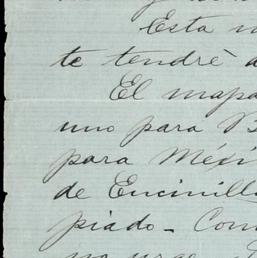 Esta
te tendrè a
El mapa
uno para B
para Méxi
de Encinill
piado - Com
no urge